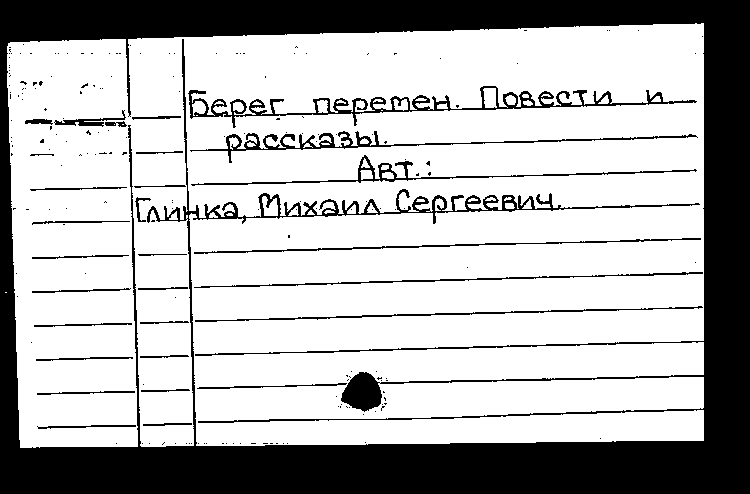 Берег перемен. Повести и
рассказы.
Авт.:
Глинка, Михаил Сергеевич.